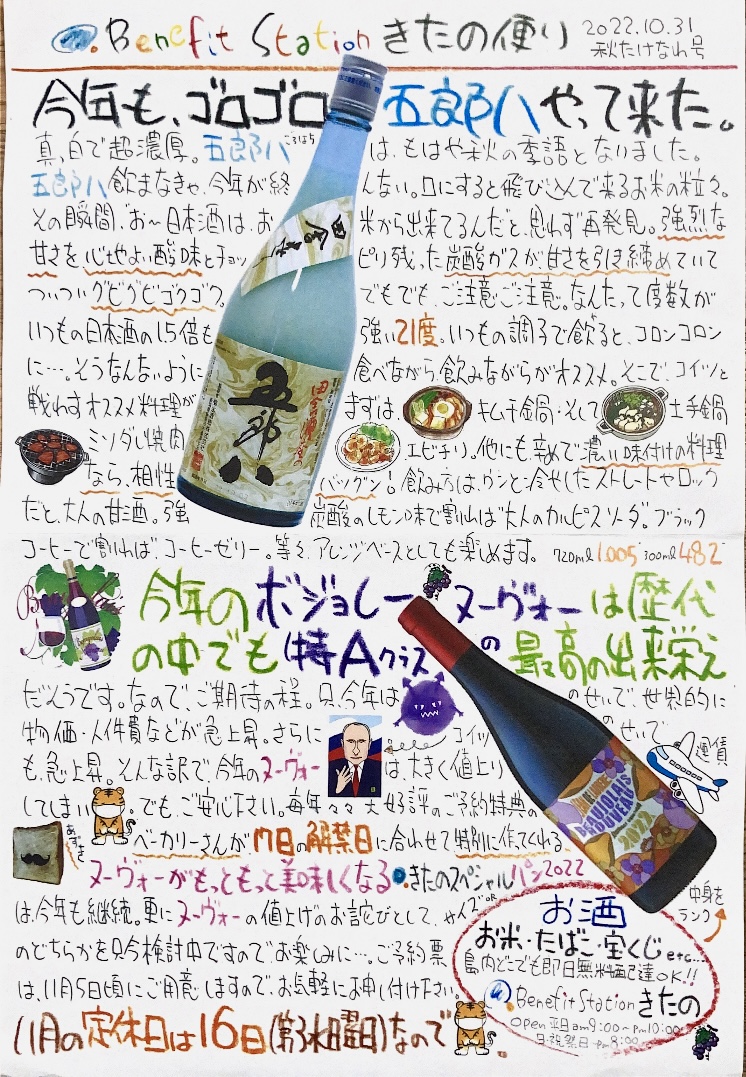 Benefit Station きたの便り 2022.10.31
秋たけなわ号
今年も、ゴロゴロ五郎八やって来た。
真っ白で超濃厚。五郎八は、もはや秋の季語となりました。
ごろはち
五郎八飲まなきゃ、今年が終んない。口にすると飛び込んで来るお米の粒々。
その瞬間、お〜日本酒は、お米から出来てるんだと、思わず再発見。強烈な
甘さを、心地よい酸味とチョッピリ残った炭酸ガスが、甘さを引き締めていて
ついついグビグビゴクゴク。でもでも、ご注意ご注意。なんたって度数が
いつもの日本酒の1.5倍も強い21度。いつもの調子で飲ると、コロンコロン
に…。そうなんないように食べながら、飲みながらがオススメ。そこで、コイツと
戦わすオススメ料理が まずは キムチ鍋・そして 土手鍋
ミソダレ焼肉 エビチリ。他にも、辛めで濃い味付けの料理
なら、相性バツグン! 飲み方は、ウンと冷やしたストレートやロック
だと、大人の甘酒。強炭酸のレモン味で割れば大人のカルピスソーダ。ブラック
コーヒーで割れば、コーヒーゼリー。等々、アレンジベースとしても楽しめます。 720ml 1.005 300ml 482
田舎れ
五郎八
今年のボジョレーヌーヴォーは歴代
の中でも「特Aクラス」の最高の出来栄え
だそうです。なので、ご期待の程。只、今年は のせいで、世界的に
物価・人件費などが急上昇。さらに コイツ のせいで 運賃
も、急上昇。そんな訳で、今年のヌーヴォーは、大きく値上り
してしまい 。でも、ご安心下さい。毎年々々大好評のご予約特典の
あずき
ベーカリーさんが、17日の解禁日に合わせて特別に作ってくれる
ヌーヴォーがもっともっと美味しくなる きたのスペシャルパン2022
BEAUJOLAIS
NOUVEAU
2022
は、今年も継続。更にヌーヴォーの値上げのお詫びとして、サイズor中身をランク
のどちらかを只今検討中ですのでお楽しみに…。ご予約票
は、11月5日頃にご用意しますので、お気軽にお申し付け下さい。
11月の定休日は16日(第3水曜日)なので
お酒
お米・たばこ・宝くじetc…
島内どこでも即日無料配達OK!!
Benefit Station きたの
Open 平日am9:00〜pm10:00
日・祝祭日〜pm8:00